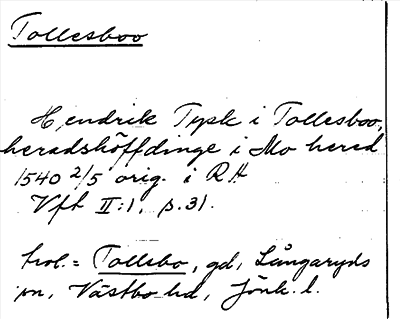 Tollesboo
Hendrik Tysk i Tollesboo,
heradshöffdinge i Mo herad
1540 2/5 orig. i RA
Vft II:1, s. 31.
trol. = Tollsbo, gd, Långaryds
sn, Västbo hd, Jönk. l.